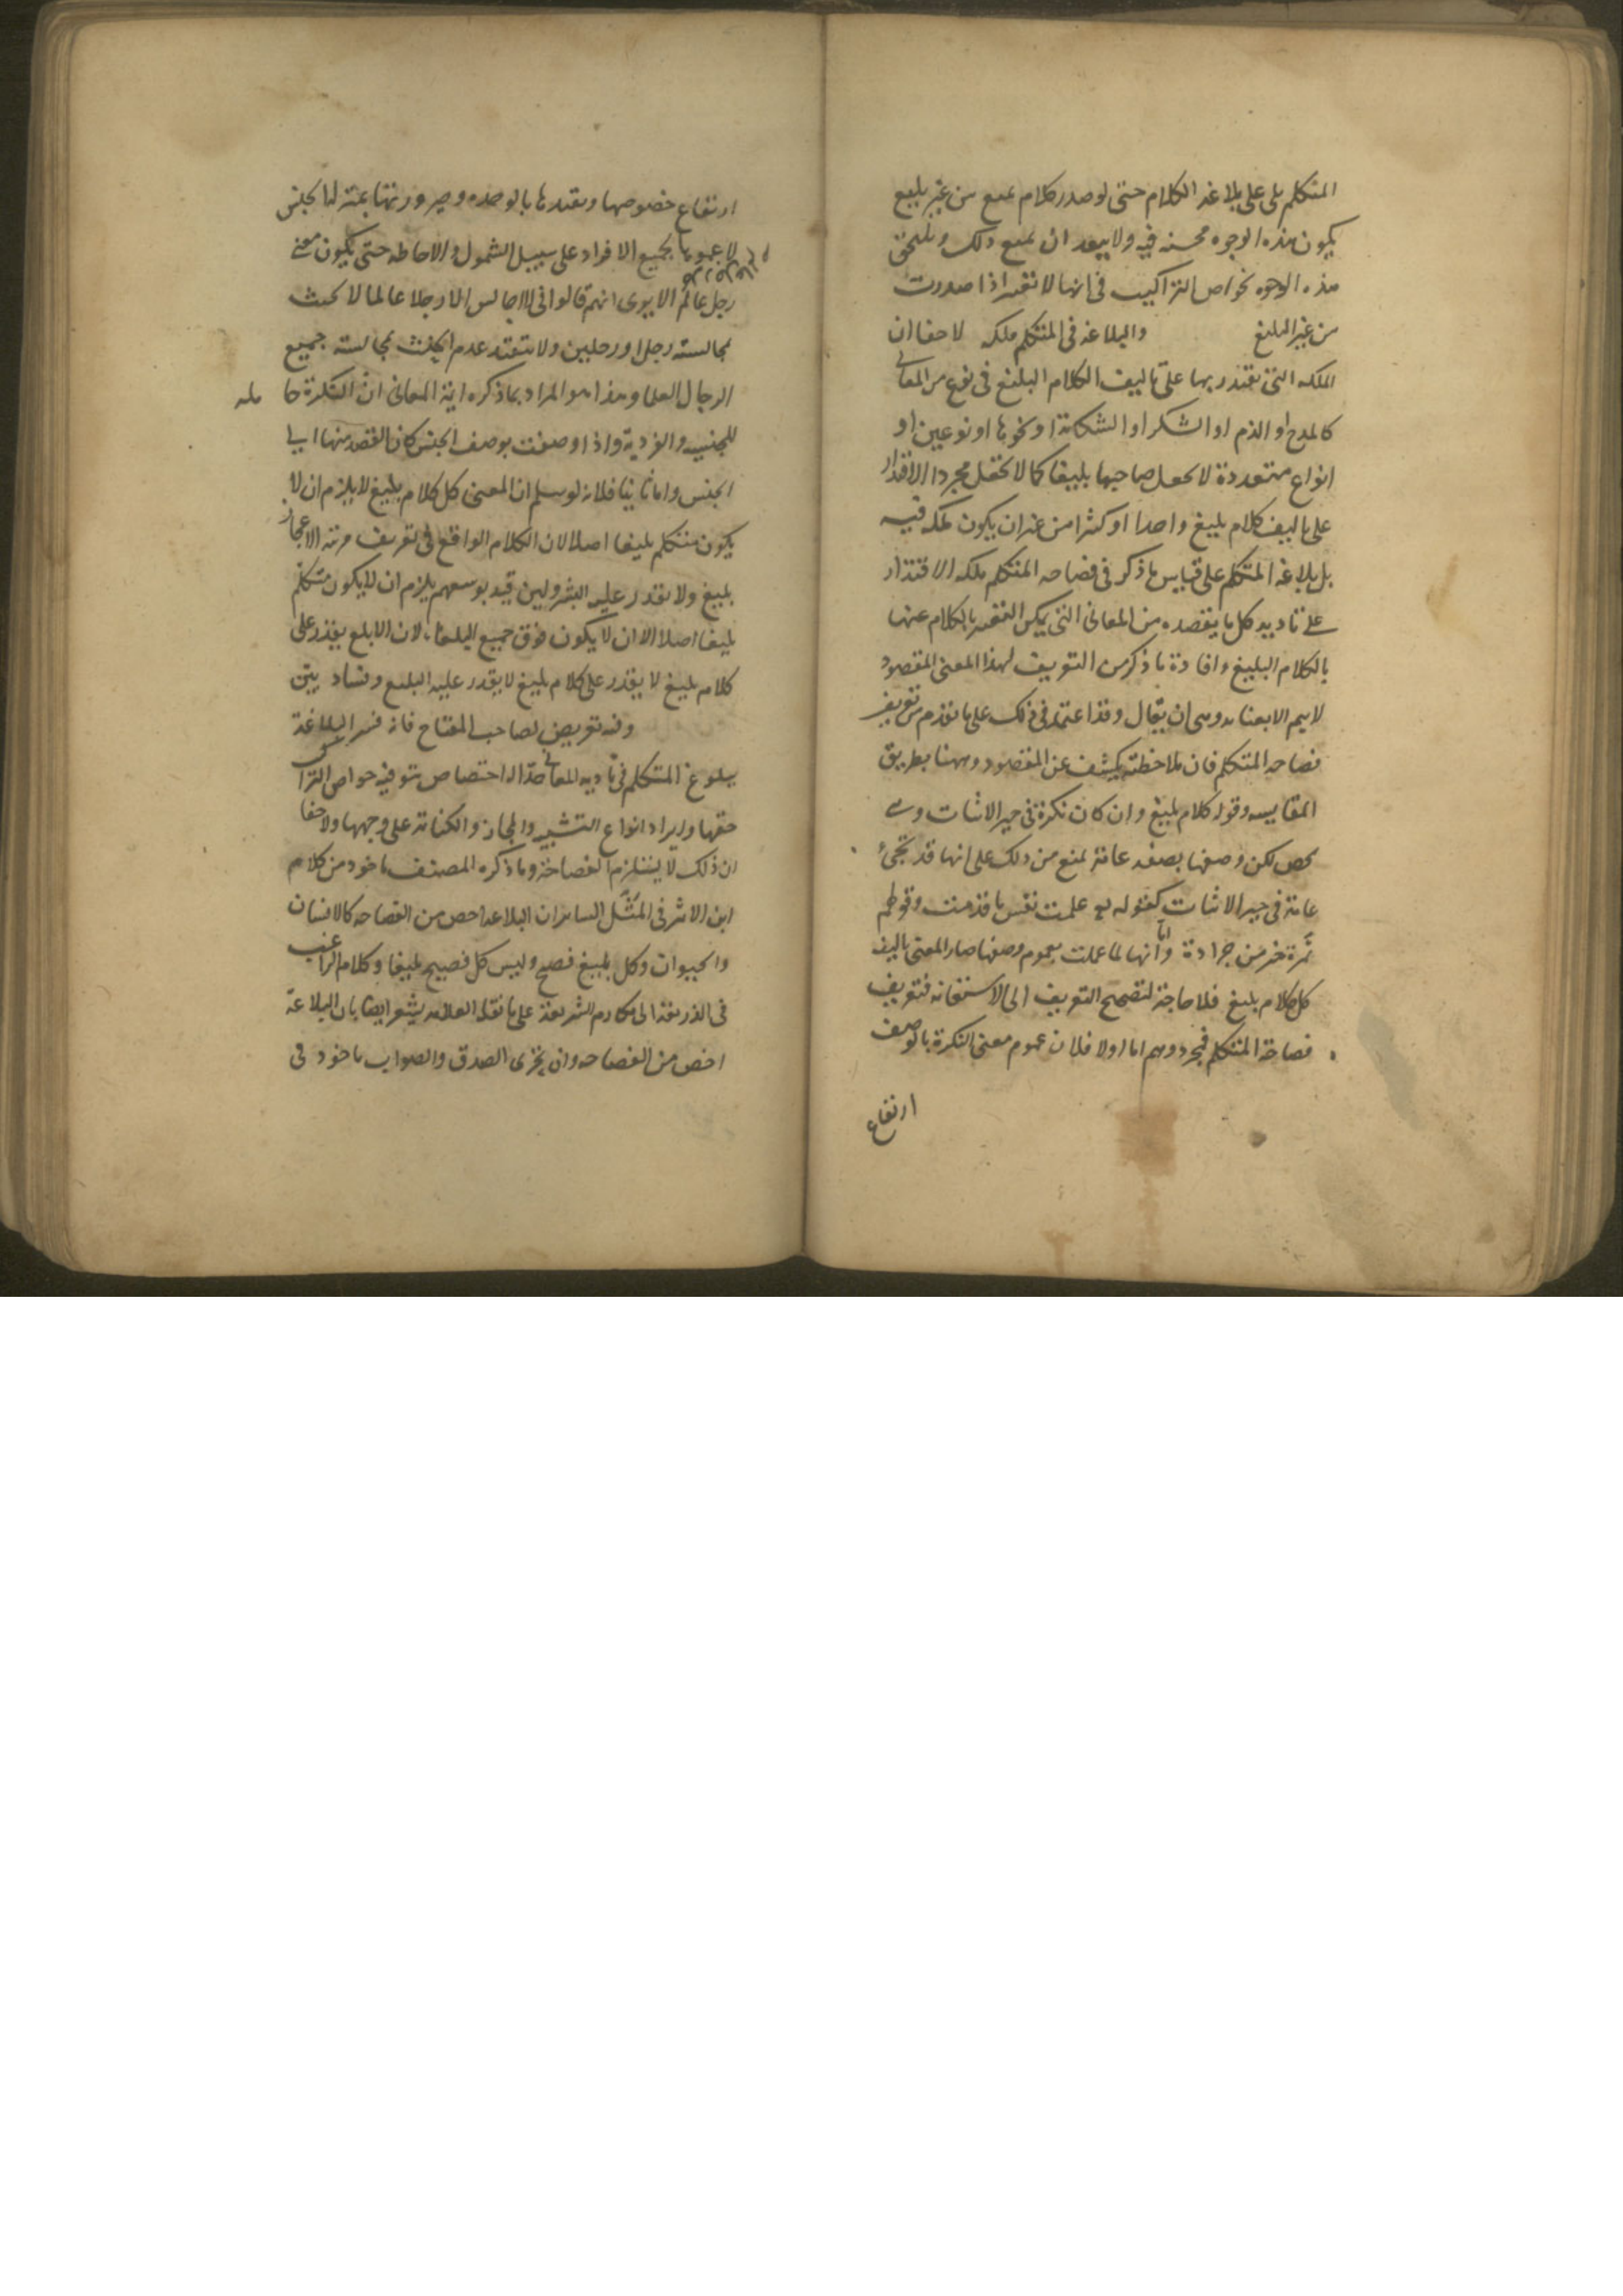 المتكلم بل على بلاغة الكلام حتى لو صدر كلام بليغ من غير بليغ
يكون هذه الوجوه محسنة فيه ولا يبعد ان يمنع ذلك ويلحق
هذه الوجوه بخواص التراكيب في انها لا تعتبر اذا صدرت
من غير البليغ والبلاغة في المتكلم ملكة لا خفا ان
الملكة التي يقتدر بها على تاليف الكلام البليغ في نوع من المعاني
كالمدح او الذم او الشكر او الشكاية او نحوها او نوعين او
انواع متعددة لا يجعل صاحبها بليغا كما لا يجعل مجرد الاقتدار
على تاليف كلام بليغ واحدا او كثرا من غير ان يكون ملكة فيه
بل بلاغة المتكلم على قياس ما ذكر في فصاحة المتكلم ملكة الاقتدار
على تادية كل ما يقصده من المعاني التي يمكن التعبير بالكلام عنها
بالكلام البليغ وافادة ما ذكر من التعريف لهذا المعنى المقصود
لا يتم الا بعناية وهي ان يقال وقد اعتمد في ذلك على ما تقدم من تعريف
فصاحة المتكلم فان ملاحظته يكشف عن المقصود وههنا بطريق
المقايسة وقوله كلام بليغ وان كان نكرة في حيز الاثبات وهي
تخص لكن وصفها بصفة عامة يمنع من ذلك على انها قد تجيء
عامة في حيز الاثبات كقوله تع علمت نفس ما قدمت وقولهم
تمرة خير من جرادة واما انها لما عملت بعموم وصفها صار المعنى تاليف
كل كلام بليغ فلا حاجة لتصحيح التعريف الى الاستعانة بتعريف
فصاحة المتكلم فمجرد وهم اما اولا فلان عموم معنى النكرة بالوصف
ارتفاع
ارتفاع خصوصها وتقيدها بالوحدة وصيرورتها بمنزلة الجنس
لا عمومها لجميع الافراد على سبيل الشمول والاحاطة حتى يكون معنى
رجل عالم الا يرى انهم قالوا في لا اجالس الا رجلا عالما لا يحنث
بمجالسة رجل او رجلين ولا يتقيد عدم الحنث بمجالسة جميع
الرجال العلما وهذا هو المراد بما ذكره ايمة المعاني ان النكرة حاملة
للجنسية والفردية واذا وصفت بوصف الجنس كان القصد منها الى
الجنس واما ثانيا فلانه لو سلم ان المعنى كل كلام بليغ لا يلزم ان لا
يكون متكلم بليغا اصلا لان الكلام الواقع في تعريف مرتبة الاعجاز
بليغ ولا يقدر عليه البشر وليس قيد بوسعهم يلزم ان لا يكون متكلم
بليغا اصلا الا ان لا يكون فوق جميع البلغا، لان الابلغ يقدر على
كلام بليغ لا يقدر على كلام بليغ لا يقدر عليه البليغ وفساد بين
وفيه تعريض لصاحب المفتاح فانه فسر البلاغة
ببلوغ المتكلم في تادية المعاني حدا له اختصاص بتوفية خواص التراكيب
حقها وايراد انواع التشبيه والمجاز والكناية على وجهها ولا خفا
ان ذلك لا يستلزم الفصاحة وما ذكره المصنف ماخوذ من كلام
ابن الاثير في المثل الساير ان البلاغة اخص من الفصاحة كالانسان
والحيوان وكل بليغ فصيح وليس كل فصيح بليغا وكلام الراغب
في الذريعة الى مكارم الشريعة على ما نقله العلامة يشعر ايضا بان البلاغة
اخص من الفصاحة وان تحرى الصدق والصواب ماخوذ في